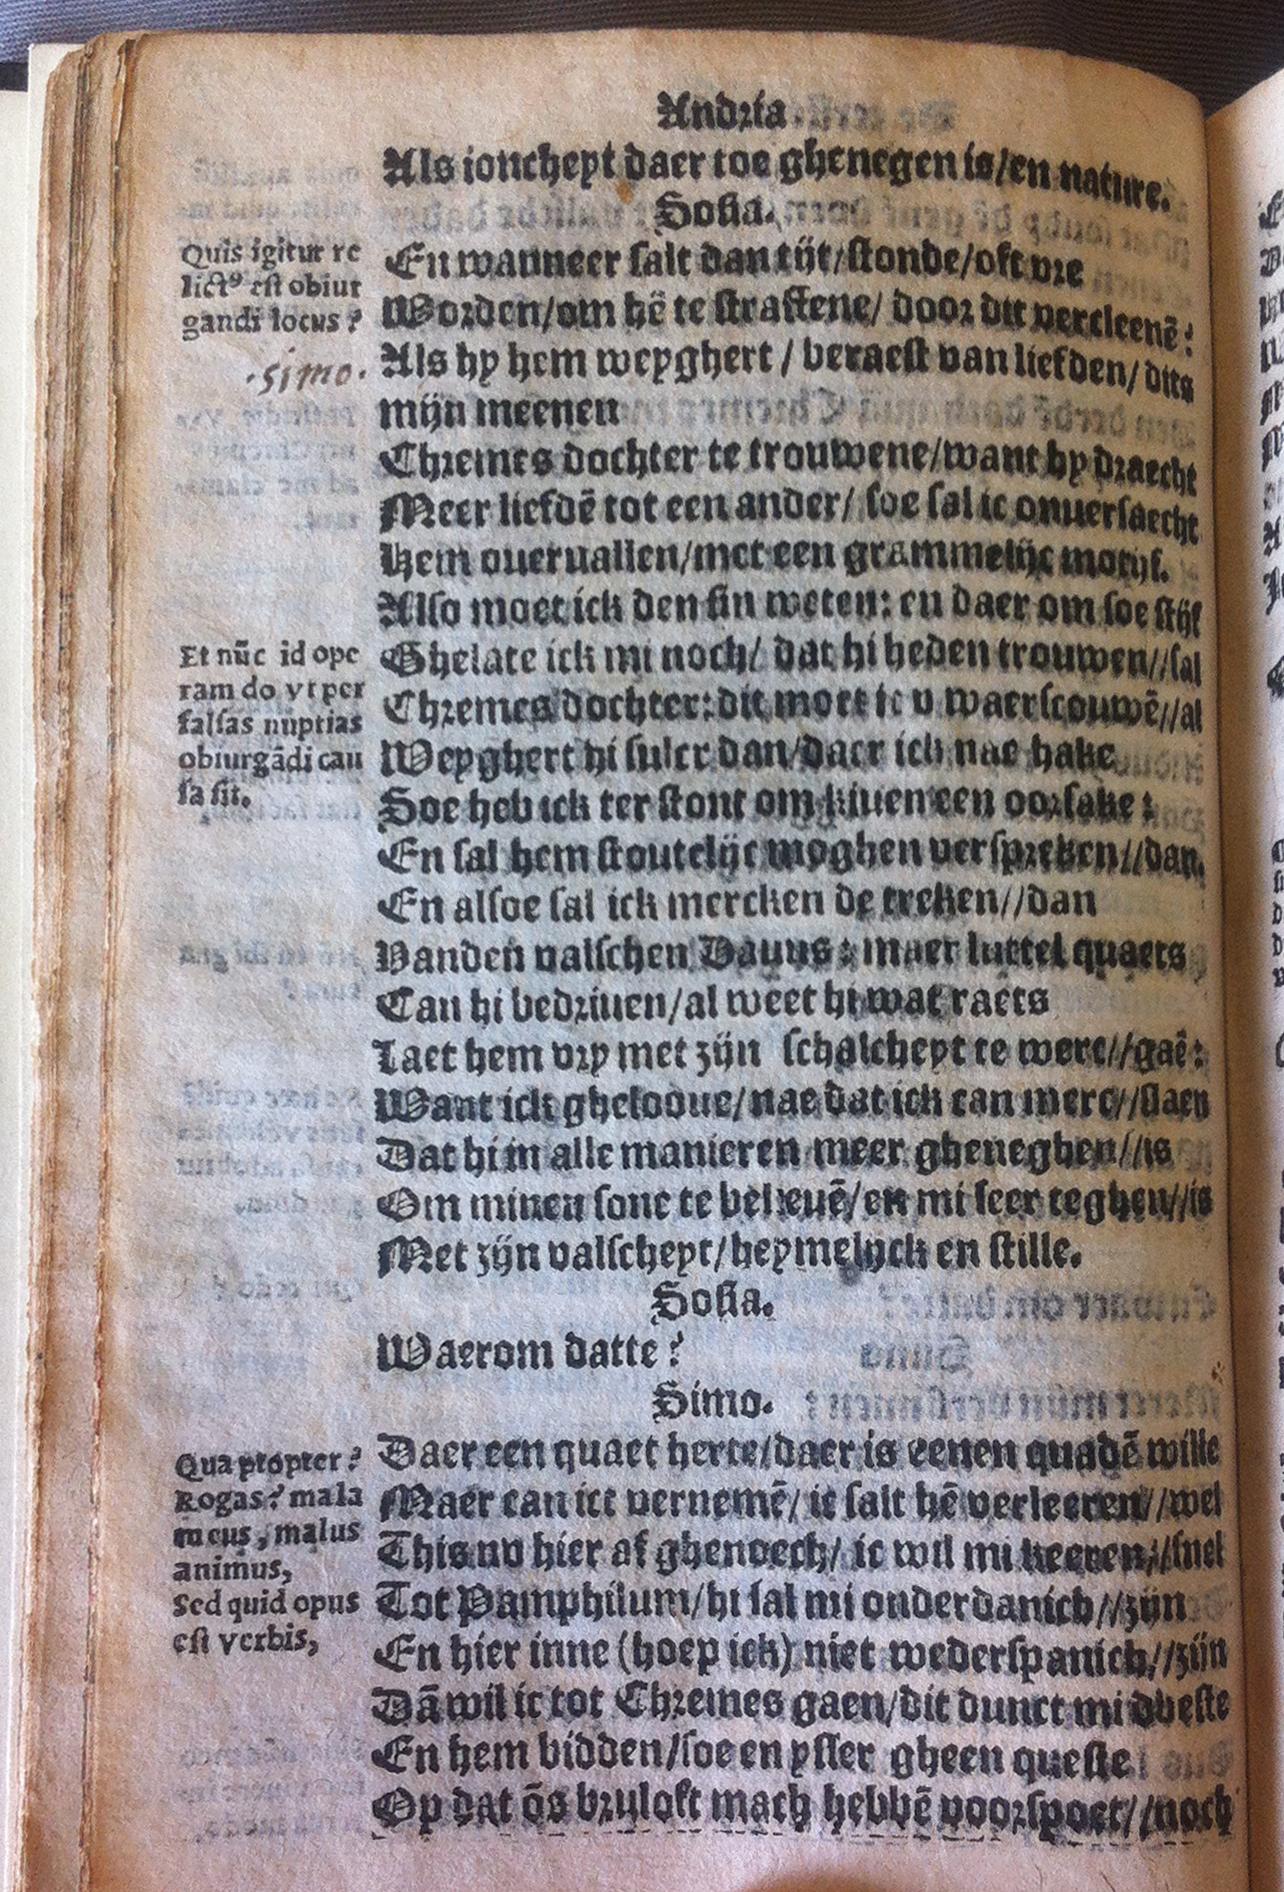 Andria.
Als ioncheyt daer toe ghenegen is/en nature.
Sosia.
Quis igitur re
lict⁹ est obiur
gandi locus?
En wanneer salt dan tijt/stonde/oft vre
Worden/om hē te straffene/ door dit vercleenē?
·simo·
Als hy hem weyghert / beraest van liefden/ dits
mijn meenen
Chremes dochter te trouwene/want hy draecht
Meer liefdē tot een ander/ soe sal ic onuersaecht
Hem oueruallen/met een grammelijc motijf.
Also moet ick den sin weten: en daer om soe stijf
Et nūc id ope
ram do vt per
falsas nuptias
obiurgādi cau
sa sit.
Ghelate ick mi noch/ dat hi heden trouwen//sal
Chremes dochter: dit moet ic v waerscouwē//al
Weyghert hi sulcx dan/daer ick nae hake
Soe heb ick ter stont om kiuen een oorsake:
En sal hem stoutelijc moghen verspreken//dan.
En alsoe sal ick mercken de treken//dan
Vanden valschen Dauus: maer luttel quaets
Can hi bedriuen/al weet hi wat raets
Laet hem vry met zijn schalcheyt te werc//gaē:
Want ick ghelooue/nae dat ick can merc//slaen
Dat hi in alle manieren meer gheneghen//is
Om minen sone te belieuē/en mi seer teghen//is
Met zijn valscheyt/heymelijck en stille.
Sosia.
Waerom datte?
Simo.
Qua propter?
Rogas? mala
mens, malus
animus,
Sed quid opus
est verbis,
Daer een quaet herte/daer is eenen quadē wille
Maer can ict vernemē/ ic salt hē verleeren//wel
This nv hier af ghenoech/ ic wil mi keeren//snel
Tot Pamphilum/hi sal mi onderdanich//zijn
En hier inne (hoep ick) niet wederspanich//zijn
Dā wil ic tot Chremes gaen/dit dunct mi dbeste
En hem bidden/soe en ysser gheen queste
Op dat ōs bruloft mach hebbē voorspoet//noch